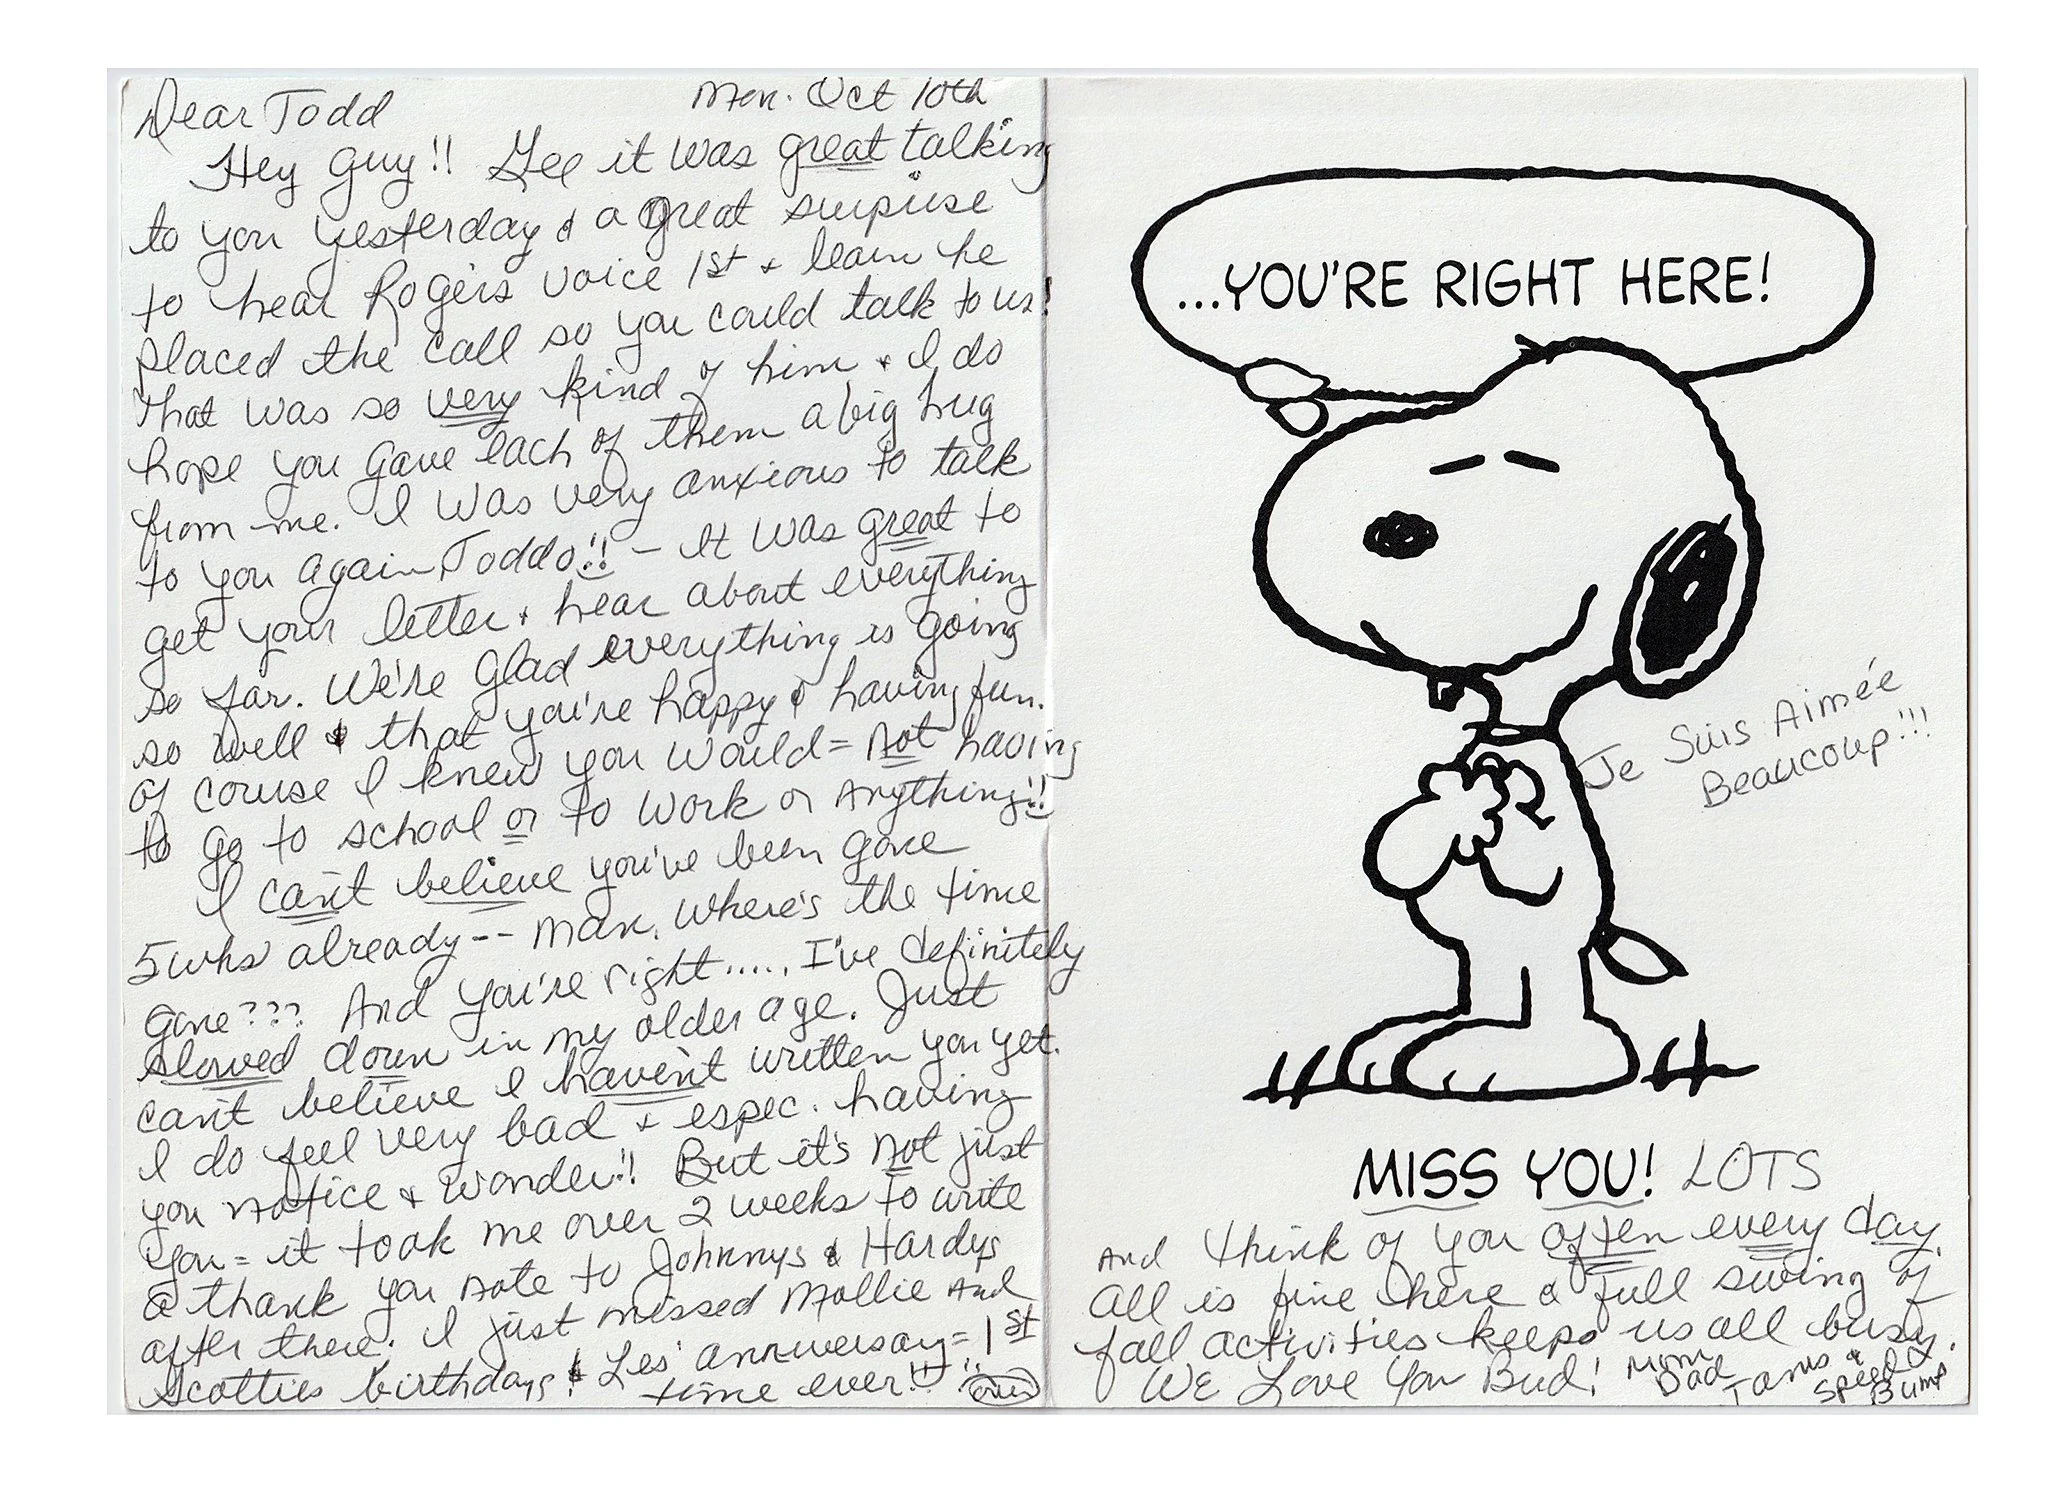 Dear Todd
Mon. Oct 10th
Hey Guy!! Gee it was great talking
to you yesterday & a great surprise
to hear Rogers voice 1st & learn he
placed the call so you could talk to us!
That was so very kind of him & I do
hope you gave each of them a big hug
from me. I was very anxious to talk
to you again Toddo!! - It was great to
get your letter & hear about everything
so far. We're glad everything is going
so well & that you're happy & having fun.
Of course I knew you would = not having
to go to school or to work or anything!!
I can't believe you've been gone
5 wks already -- man, where's the time
gone??? And you're right..... I've definitely
slowed down in my older age. Just
can't believe I haven't written you yet.
I do feel very bad & espec. having
you notice & wonder!! But it's not just
you = it took me over 2 weeks to write
a thank you note to Johnnys & Hardys
after there. I just missed Mollie And
Scotties birthdays & Les' anniversary = 1st
time ever!! (over)
...YOU'RE RIGHT HERE!
Je Suis Aimée
Beaucoup!!!
MISS YOU! LOTS
And think of you often every day.
All is fine here & full swing of
fall activities keeps us all busy.
We Love You Bud! Mom
Dad
&
Speed
Bump